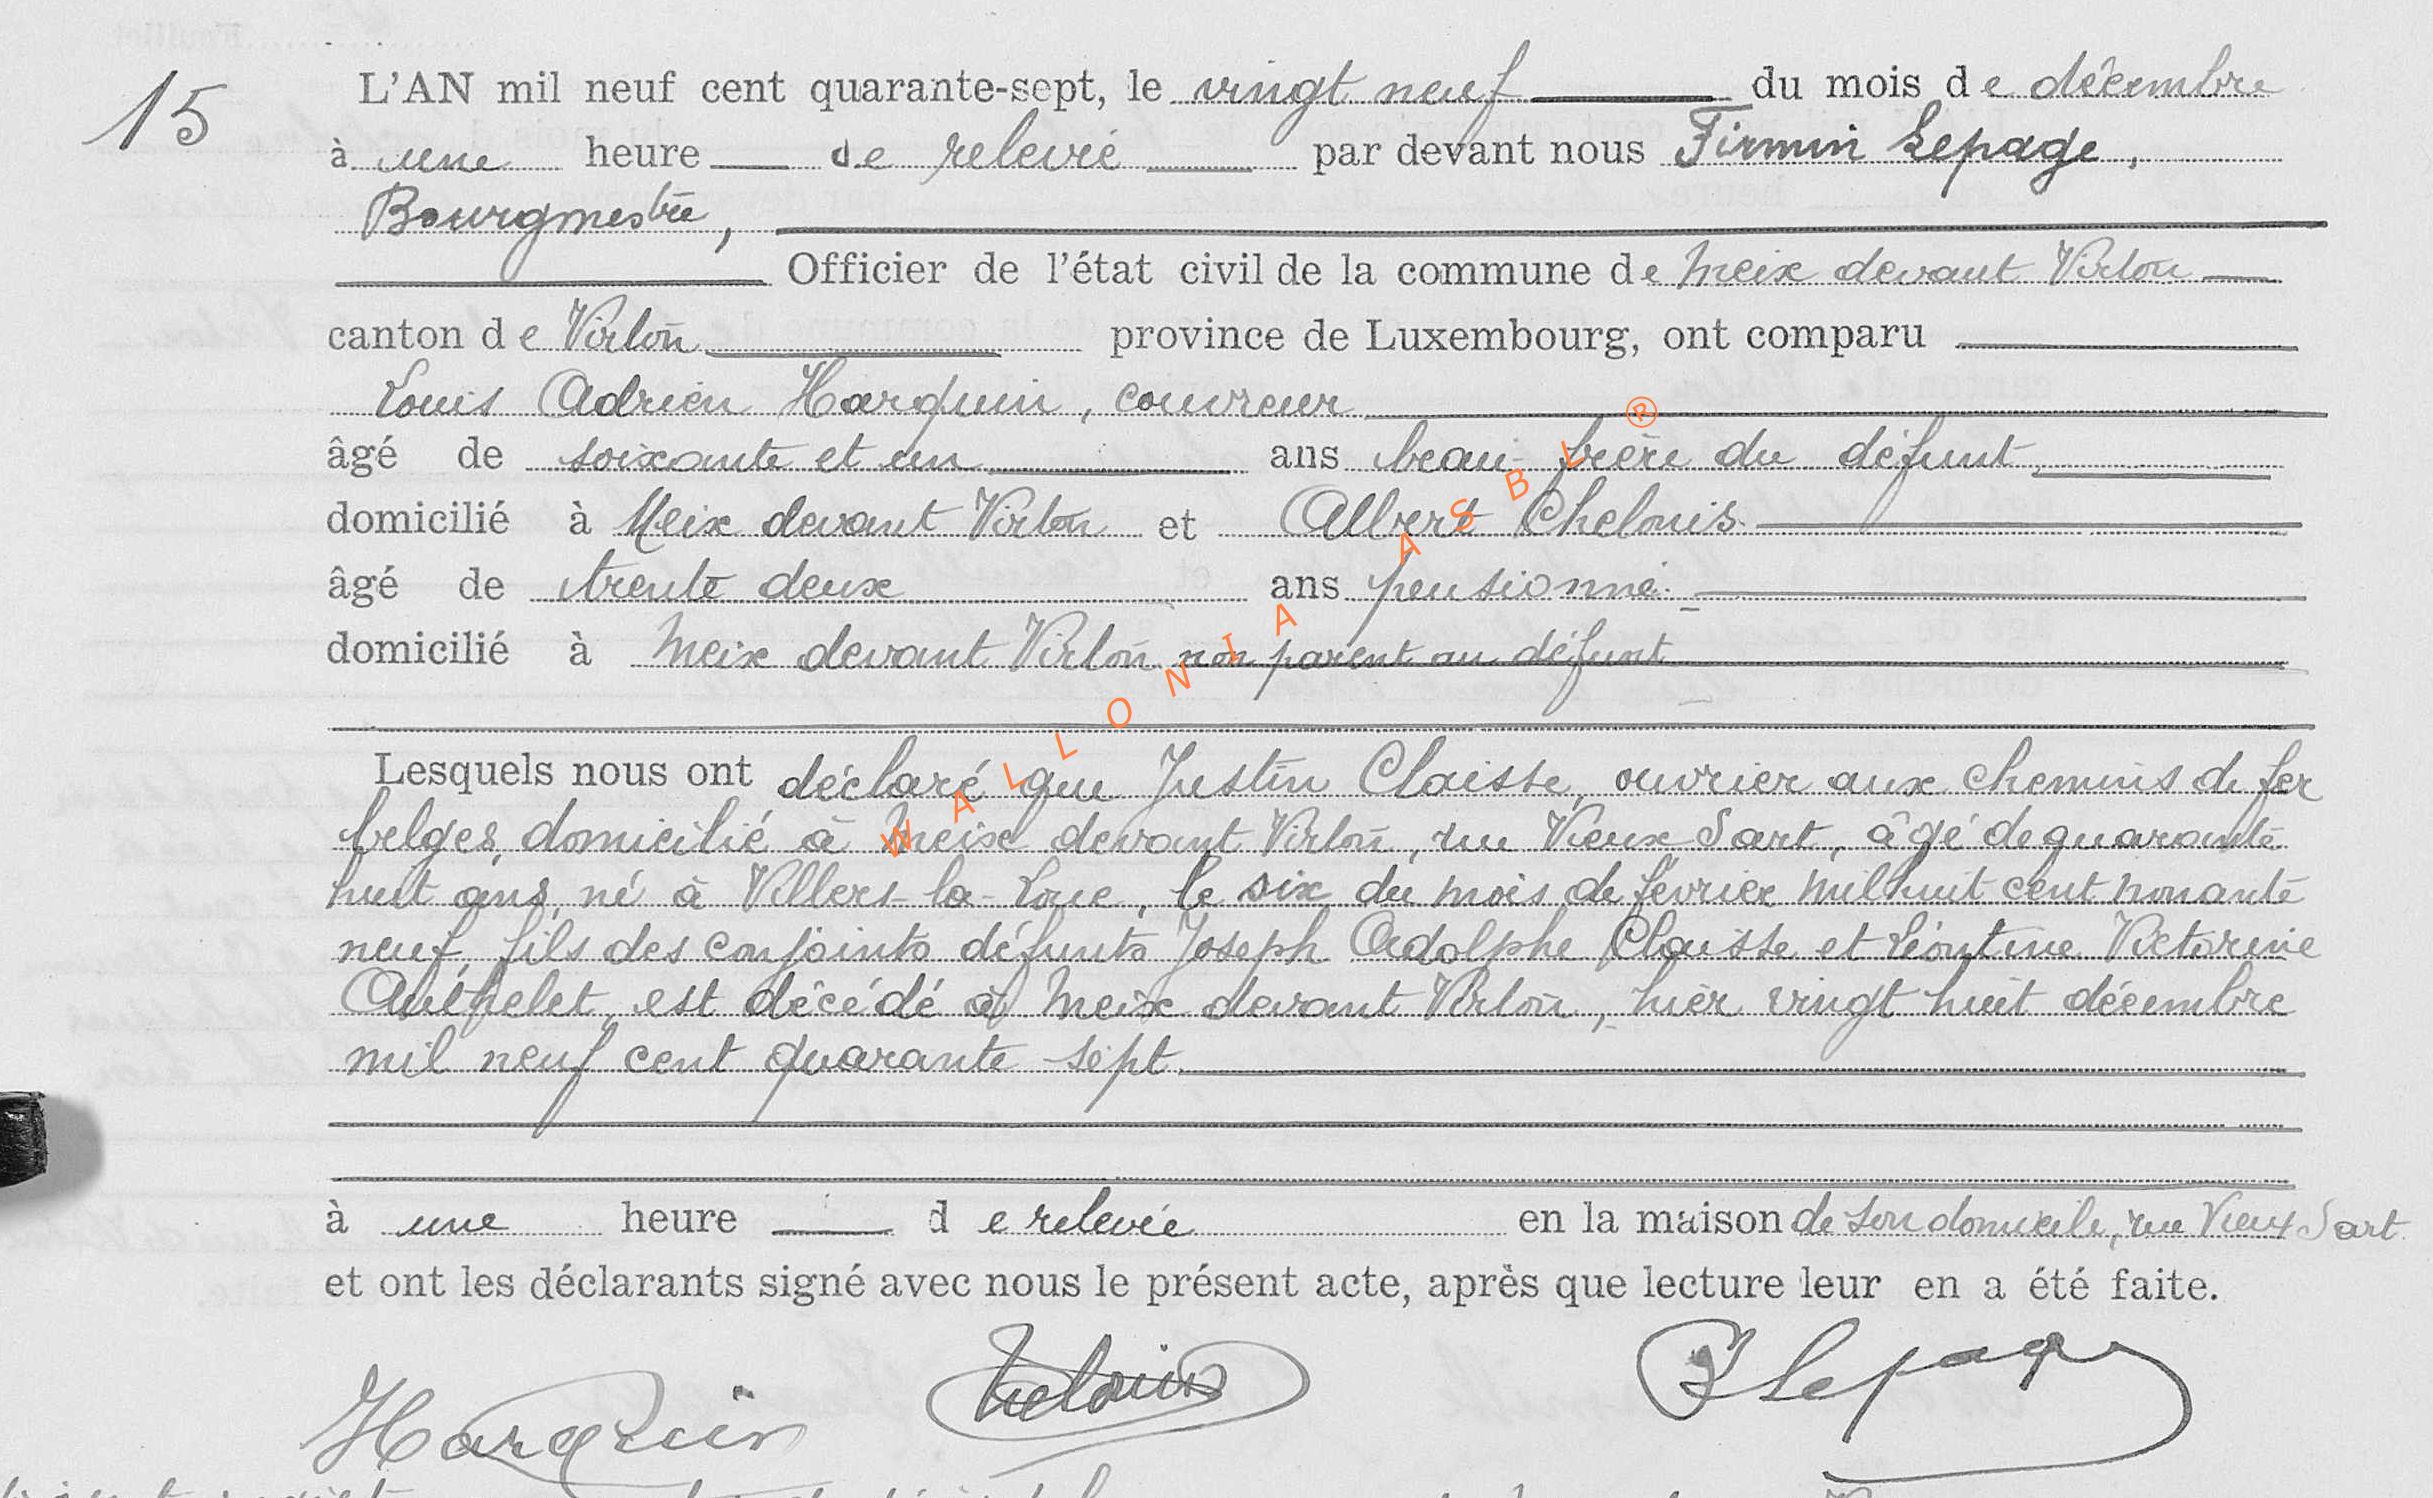 15
L'AN mil neuf cent quarante-sept, le vingt neuf du mois de décembre
à une heure de relevée par devant nous Firmin Lepage,
Bourgmestre,
Officier de l'état civil de la commune de Meix devant Virton
canton de Virton province de Luxembourg, ont comparu
Louis Adrien Harquin, couvreur
âgé de soixante et un ans beau-frère du défunt
domicilié à Meix devant Virton et Albert Chelouis
âgé de trente deux ans pensionné.
domicilié à Meix devant Virton non parent au défunt
Lesquels nous ont déclaré que Justin Claisse, ouvrier aux chemins de fer
belges, domicilié à Meix devant Virton, rue Vieux Sart, âgé de quarante
huit ans, né à Villers-la-Loue, le six du mois de février mil huit cent nonante
neuf, fils des conjoints défunts Joseph Adolphe Claisse et Léontine Victorine
est décédé à Meix devant Virton, hier vingt huit décembre
mil neuf cent quarante sept
à une heure de relevée en la maison de son domicile, rue Vieux Sart
et ont les déclarants signé avec nous le présent acte, après que lecture leur en a été faite.
Harquin Chelouis F Lepage
WALLONIA ASBL ®